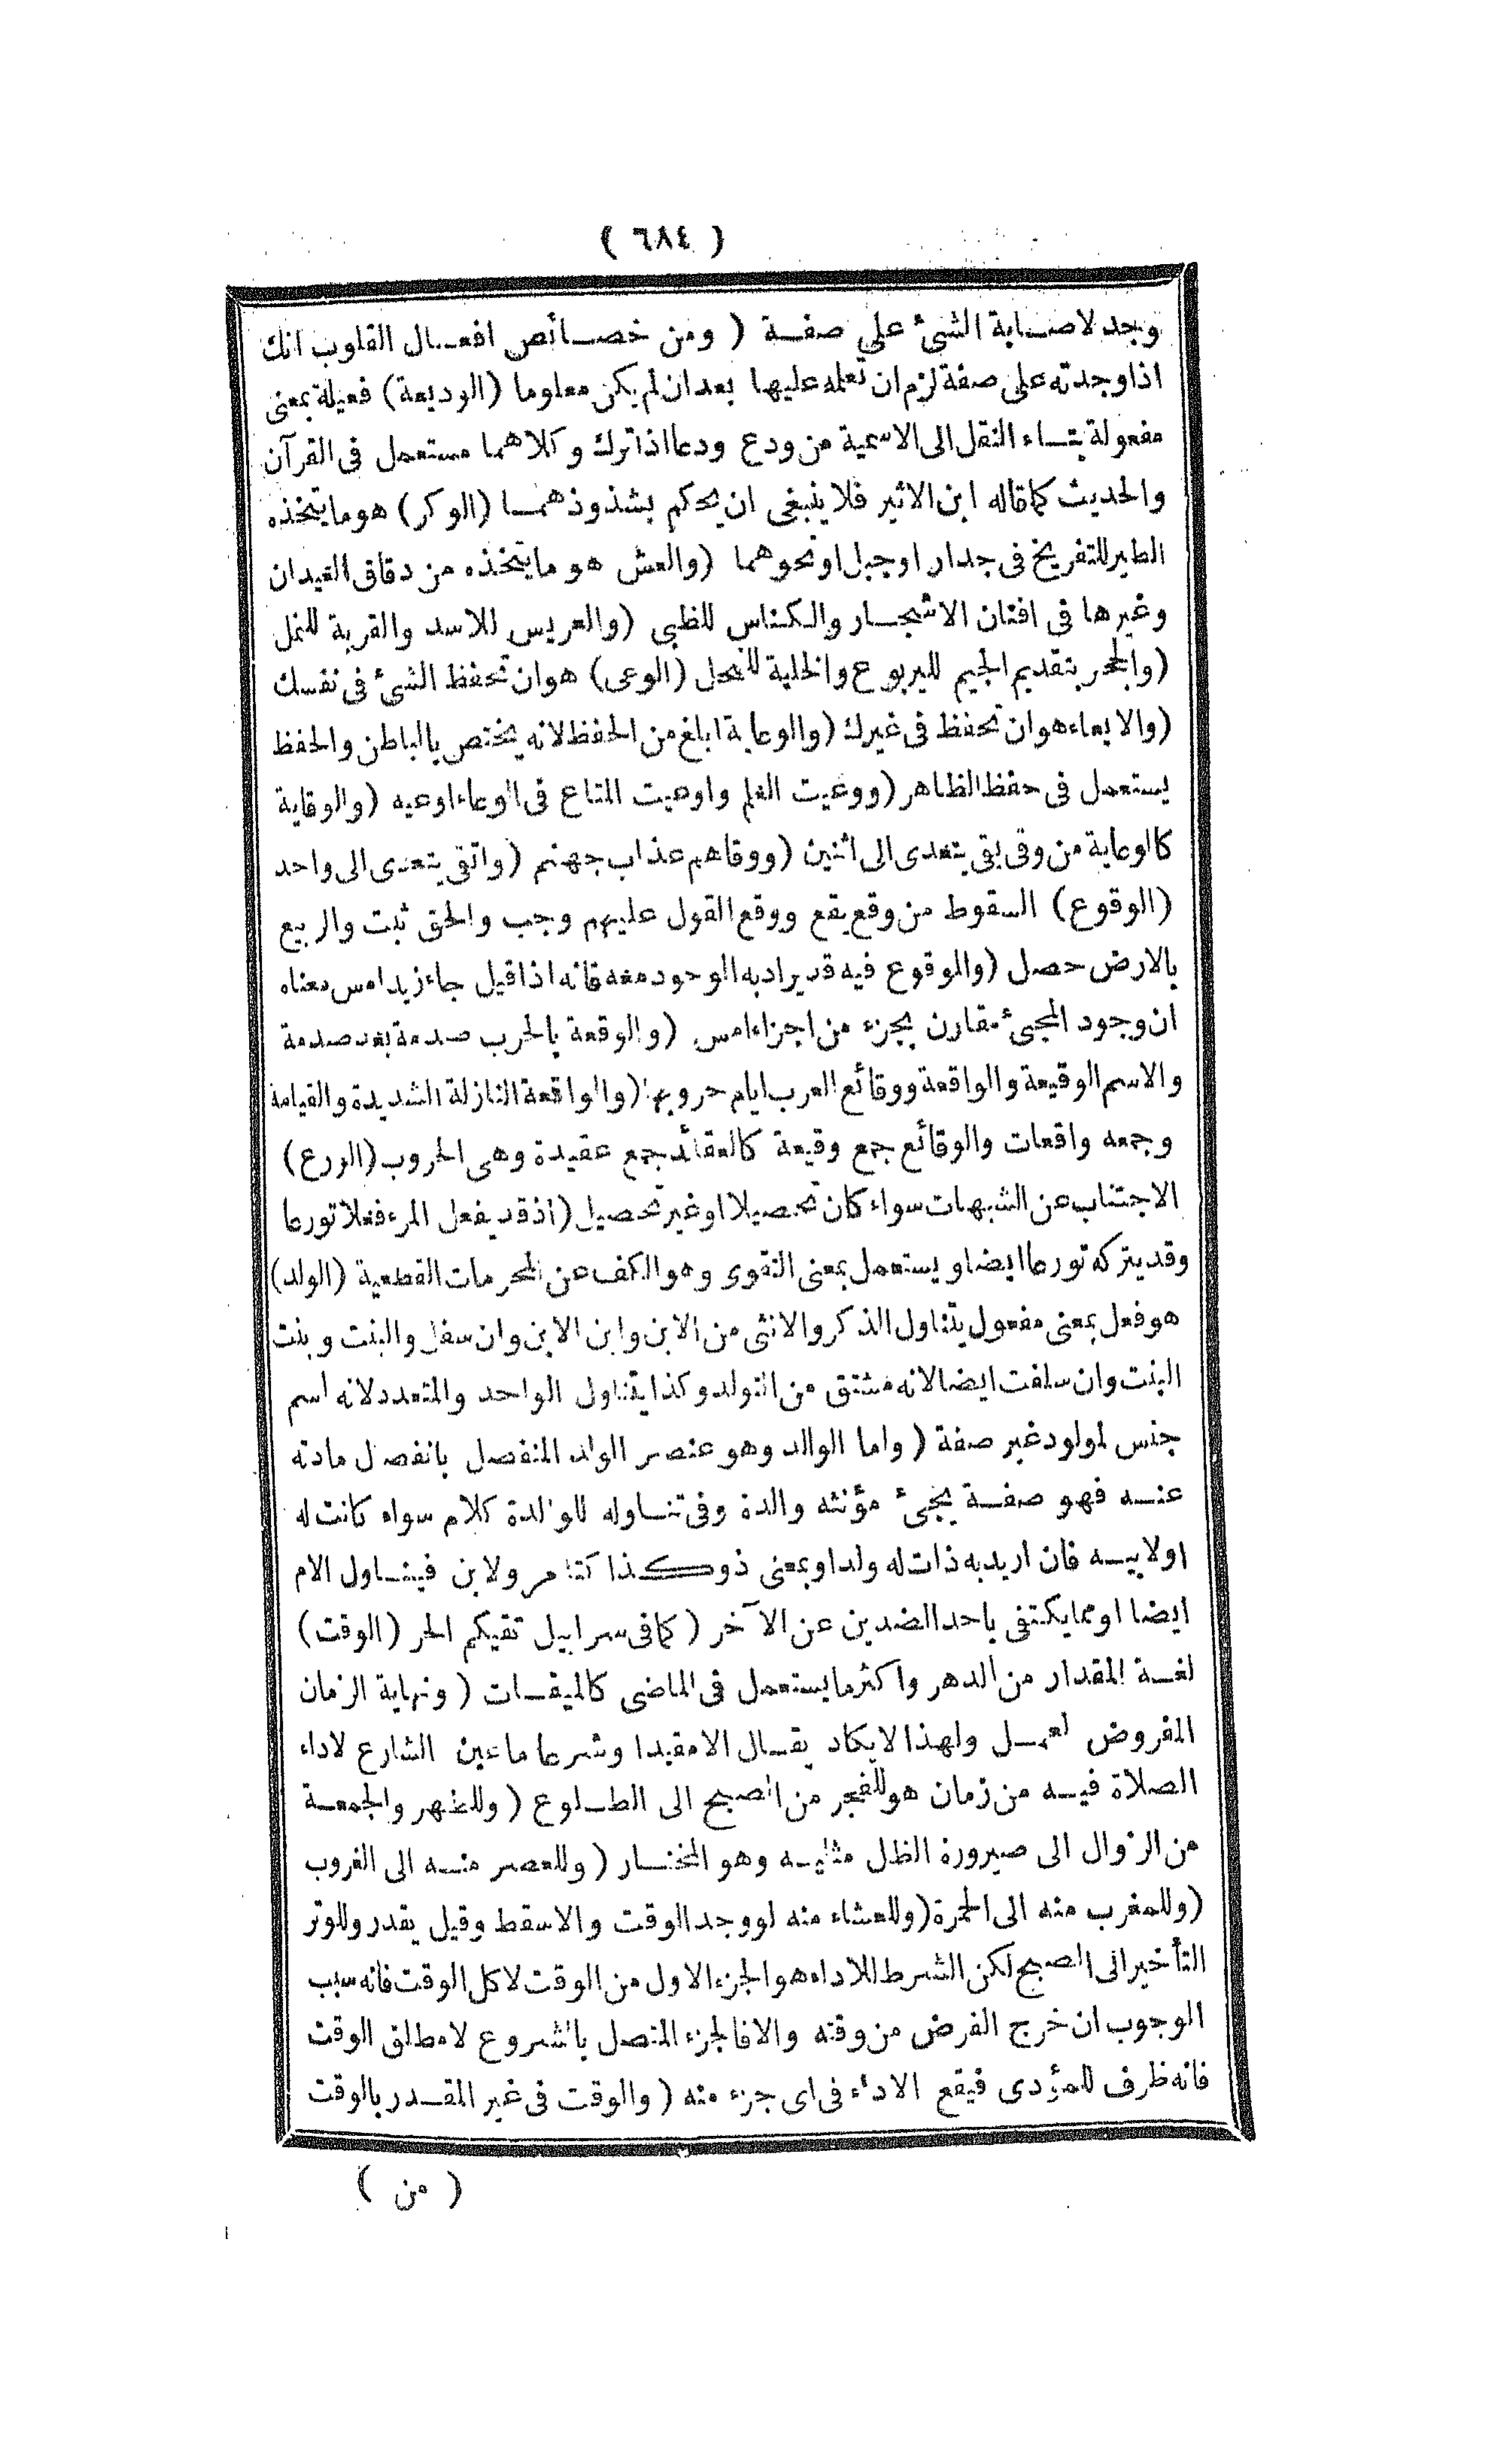 ( ٦٨٤ )
وجد لاصابة الشئ على صفة ( ومن خصائص افعال القلوب انك
اذا وجدته على صفة لزم ان تعلمه عليها بعد ان لم يكن معلوما (الوديعة) فعيلة بمعنى
مفعولة بتاء النقل الى الاسمية من ودع ودعا اذا ترك وكلاهما مستعمل فى القرآن
والحديث كما قاله ابن الاثير فلا ينبغى ان يحكم بشذوذهما (الوكر) هو ما يتخذه
الطير للتفريخ فى جدار او جبل او نحوهما (والعش هو ما يتخذه من دقاق العيدان
وغيرها فى افنان الاشجار والكناس للظبى (والعريس للاسد والقرية للنمل
(والجحر بتقديم الجيم لليربوع والخلية للنحل (الوعى) هو ان تحفظ الشئ فى نفسك
(والايعاء هو ان تحفظ فى غيرك (والوعاية ابلغ من الحفظ لانه يختص بالباطن والحفظ
يستعمل فى حفظ الظاهر (ووعيت العلم واوعيت المتاع فى الوعاء اوعيه (والوقاية
كالوعاية من وقى يقى يتعدى الى اثنين (ووقاهم عذاب جهنم (واتقى يتعدى الى واحد
(الوقوع) السقوط من وقع يقع ووقع القول عليهم وجب والحق ثبت والربيع
بالارض حصل (والوقوع فيه قد يراد به الوجود معه فانه اذا قيل جاء زيد امس معناه
ان وجود المجئ مقارن بجزء من اجزاء امس (والوقعة بالحرب صدمة بعد صدمة
والاسم الوقيعة والواقعة ووقائع العرب ايام حروبها (والواقعة النازلة الشديدة والقيامة
وجمعه واقعات والوقائع جمع وقيعة كالعقائد جمع عقيدة وهى الحروب (الورع)
الاجتناب عن الشبهات سواء كان تحصيلا او غير تحصيل (اذ قد يفعل المرء فعلا تورعا
وقد يتركه تورعا ايضا ويستعمل بمعنى التقوى وهو الكف عن المحرمات القطعية (الولد)
هو فعل بمعنى مفعول يتناول الذكر والانثى من الابن وابن الابن وان سفل والبنت وبنت
البنت وان سلفت ايضا لانه مشتق من التولد وكذا يتناول الواحد والمتعدد لانه اسم
جنس لمولود غير صفة ( واما الوالد وهو عنصر الولد المنفصل بانفصال مادته
عنه فهو صفة يجئ مؤنثه والدة وفى تناوله للوالدة كلام سواء كانت له
او لابيه فان اريد به ذات له ولد او بمعنى ذو كذا كتامر ولابن فيتناول الام
ايضا او مما يكتفى باحد الضدين عن الآخر ( كما فى سرابيل تقيكم الحر (الوقت)
لغة المقدار من الدهر واكثر ما يستعمل فى الماضى كالميقات ( ونهاية الزمان
المفروض لعمل ولهذا لا يكاد يقال الا مقيدا وشرعا ما عين الشارع لاداء
الصلاة فيه من زمان هو للفجر من الصبح الى الطلوع ( وللظهر والجمعة
من الزوال الى صيرورة الظل مثليه وهو المختار ( وللعصر منه الى الغروب
(وللمغرب منه الى الحمرة (وللعشاء منه لو وجد الوقت والا سقط وقيل يقدر وللوتر
التأخير الى الصبح لكن الشرط للاداء هو الجزء الاول من الوقت لا كل الوقت فانه سبب
الوجوب ان خرج الفرض من وقته والا فالجزء المتصل بالشروع لا مطلق الوقت
فانه ظرف للمؤدى فيقع الاداء فى اى جزء منه ( والوقت فى غير المقدر بالوقت
( من )